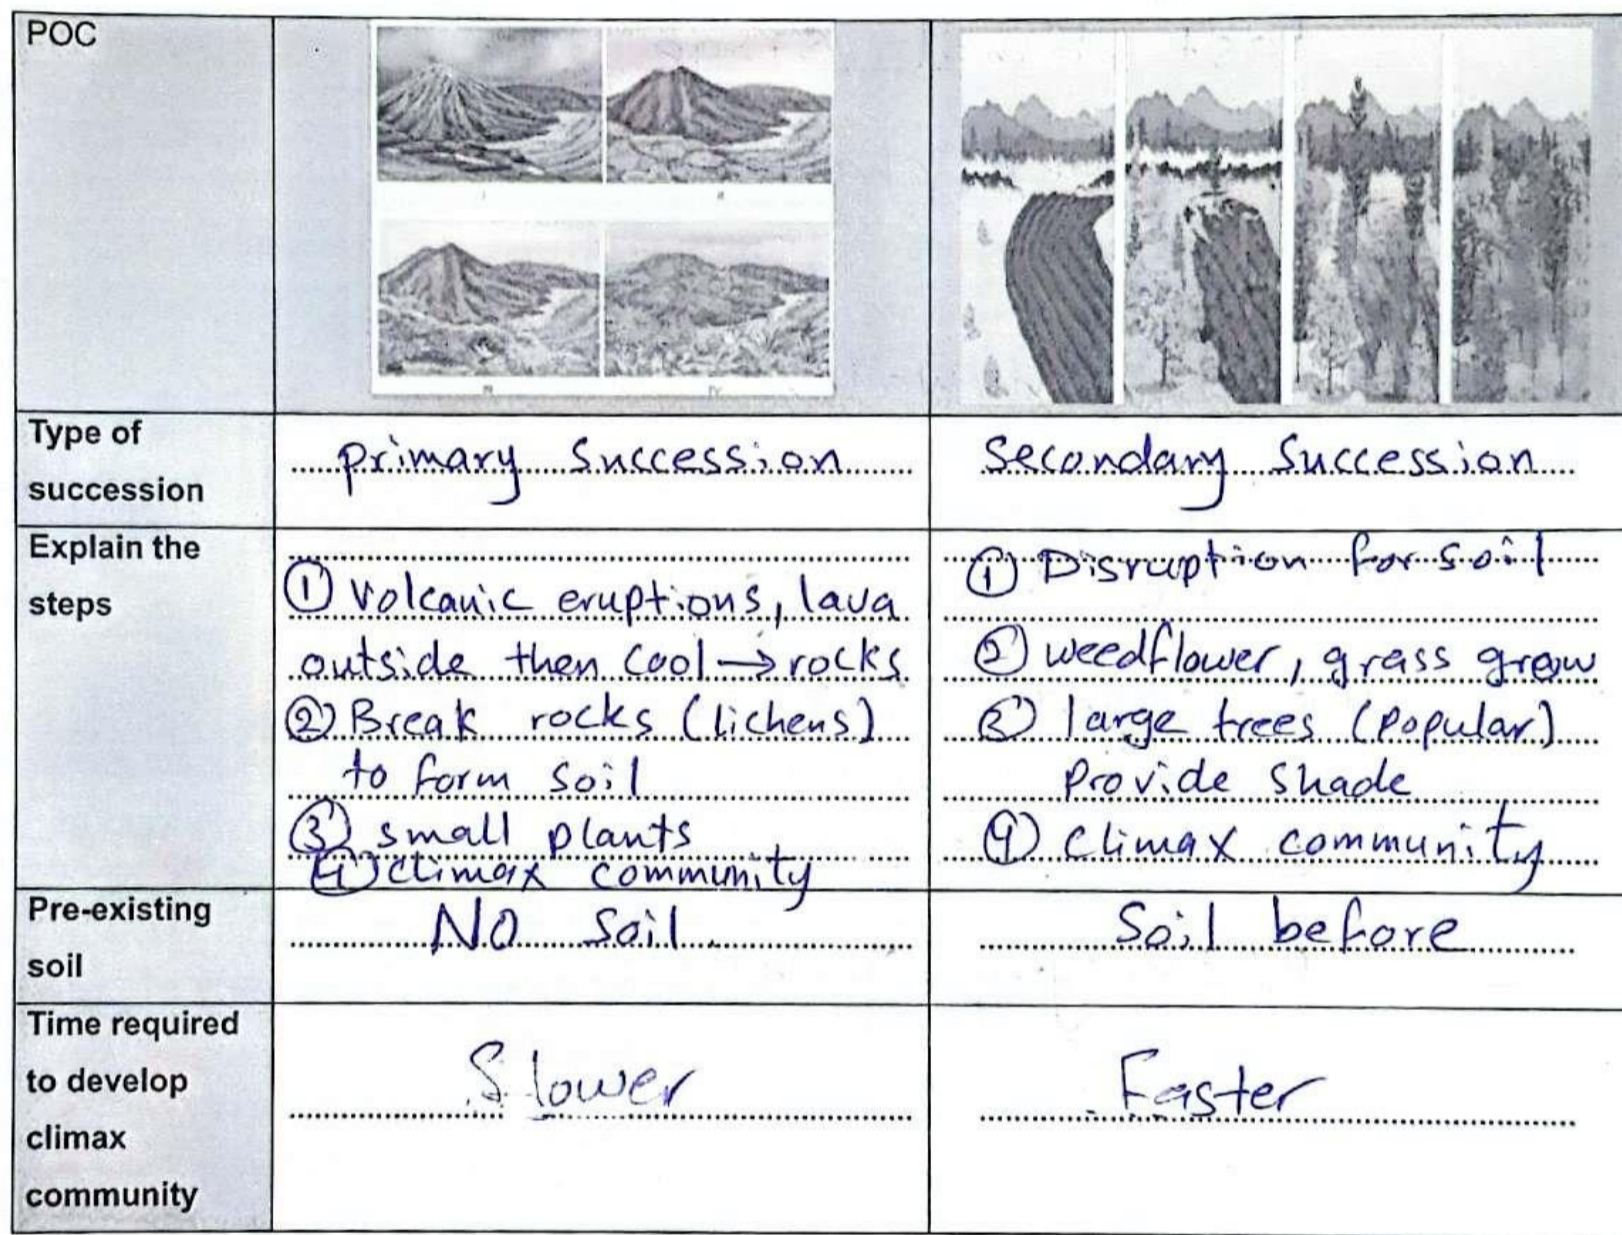 POC
I
II
III
IV
Type of
succession
primary succession
Secondary Succession
Explain the
steps
① Volcanic eruptions, lava
outside then cool → rocks
② Break rocks (lichens)
to form soil
③ small plants
④ climax community
① Disruption for soil
② weedflower, grass grow
③ large trees (popular)
Provide shade
④ climax community
Pre-existing
soil
NO Soil
Soil before
Time required
to develop
climax
community
Slower
Faster